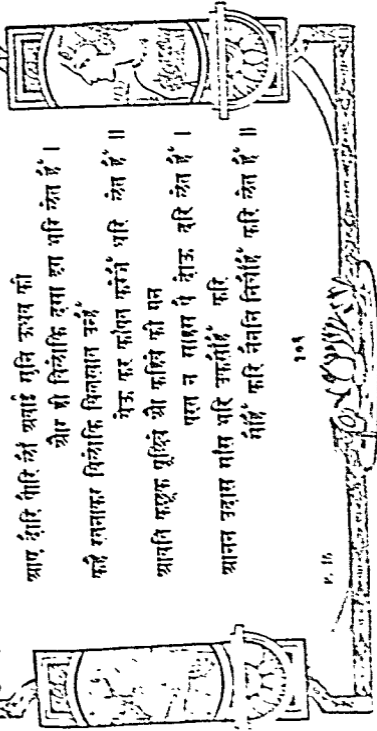 आए दौरि पौरि लौं अवाई सुनि ऊधव की
और ही बिलोकि दसा दृग भरि लेत हैं ।
कहै रतनाकर बिलोकि बिलखात उन्हैं
येऊ कर काँपत करेजैं धरि लेत हैं ॥
आवति कछूक पूछिबे औ कहिबे की मन
परत न साहस पै दोऊ दरि लेत हैं ।
आनन उदास साँस भरि उकसौंहैं करि
सौंहैं करि नैननि निचौंहैं करि लेत हैं ॥
१०९